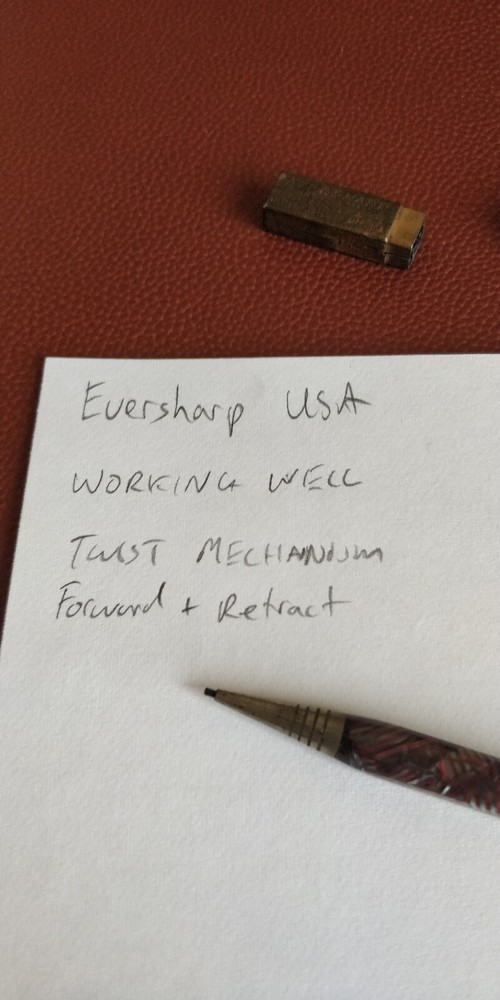 Eversharp USA
WORKING WELL
TWIST MECHANISM
Forward + Retract